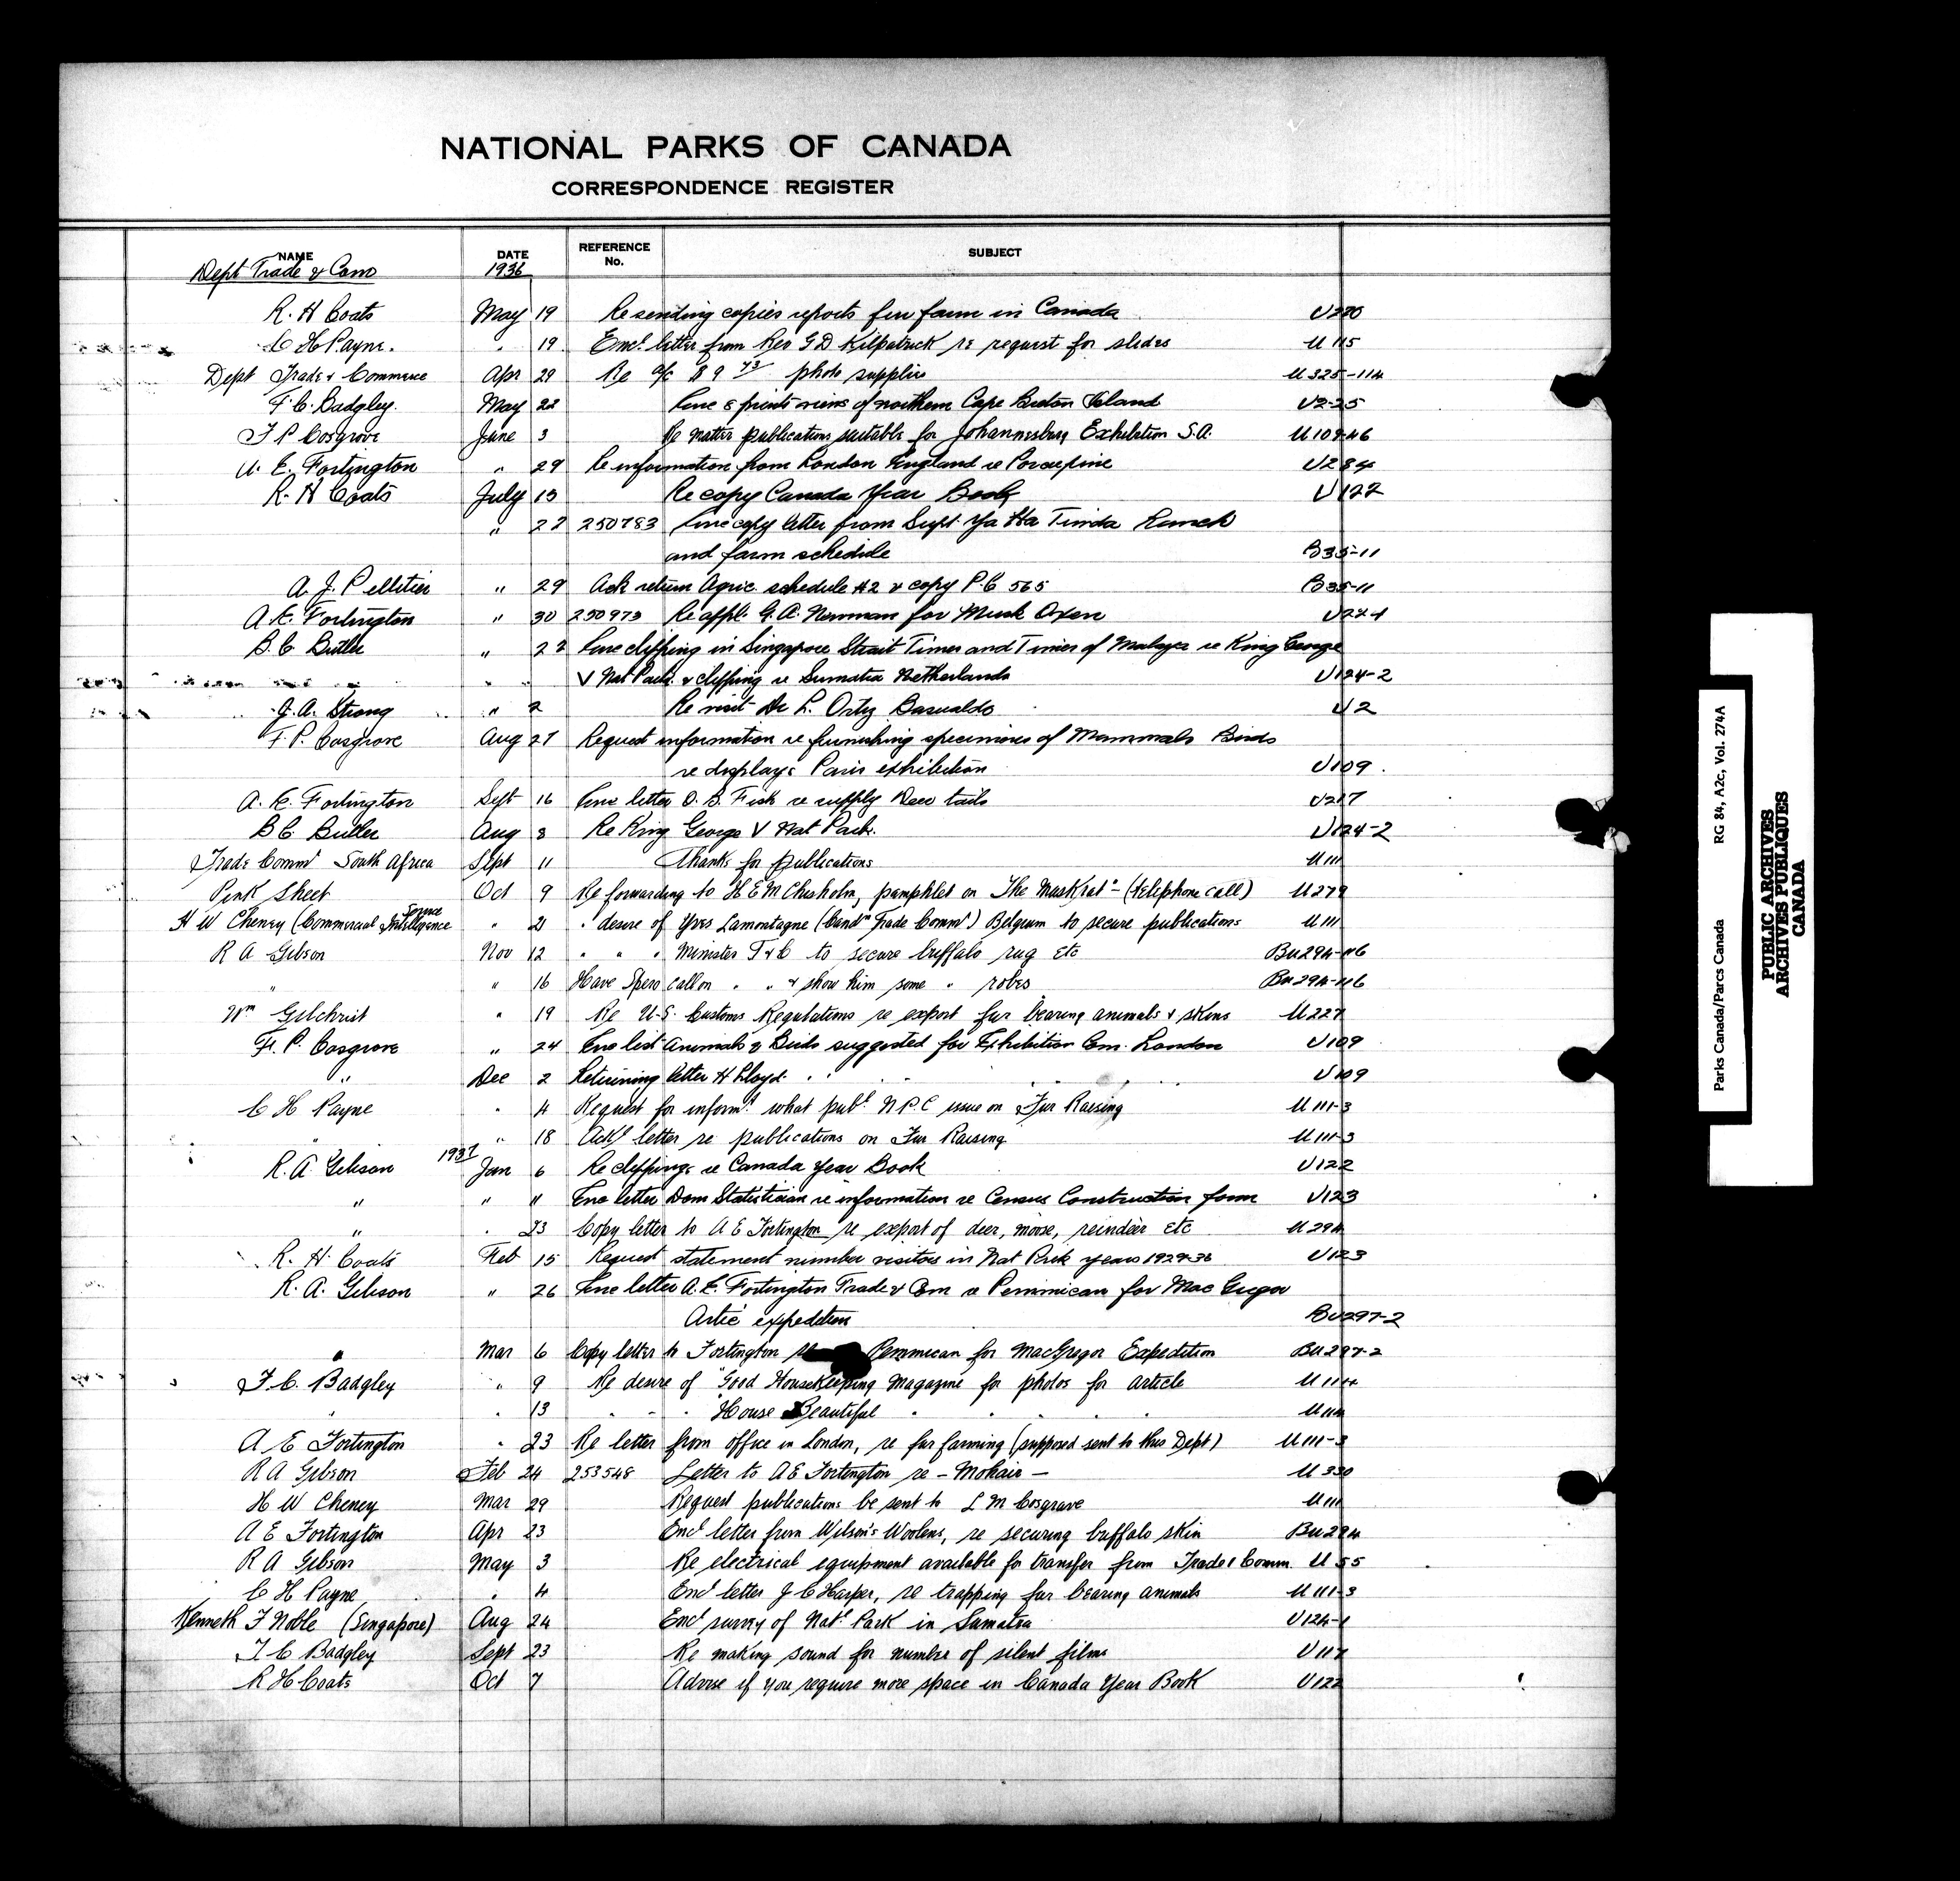 NATIONAL PARKS OF CANADA
CORRESPONDENCE REGISTER
NAME DATE REFERENCE No. SUBJECT
Dept Trade & Com 1936
R. H Coats May 19 Re sending copies reports fur farm in Canada U220
C H Payne. " 19 Encl letter from Rev G D Kilpatrick re request for slides U 115
Dept Trade & Commerce Apr 29 Re a/c $9 73 photo supplies U 325-114
F. C. Badgley. May 22 Enc 8 prints views of northern Cape Breton Island U2-25
F P Cosgrove June 3 Re matter publications suitable for Johannesburg Exhibition S.A. U 109-46
A. E. Fortington " 29 Re information from London England re Porcupine U284
R. H Coats July 15 Re copy Canada Year Book U122
" 22 250783 Enc copy letter from Supt. Ya Ha Tinda Ranch
and farm schedule B35-11
A. J. Pelletier " 29 Ack return Agric. schedule #2 & copy P.C 565 B35-11
A. E. Fortington " 30 250973 Re appl. G. A. Newman for Musk Oxen U224
B. C Butler " 22 Enc clipping in Singapore Strait Times and Times of Malaya re King George
V Nat Park. & clipping re Sumatra Netherlands U124-2
J. A. Strong " 2 Re visit Dr L. Ortiz Basualdo U2
F. P. Cosgrove Aug 27 Request information re furnishing specimens of Mammals Birds
re display: Paris exhibition U109.
A. E. Fortington Sept 16 Enc letter O. B. Fish re supply Deer tails U217
B C. Butler Aug 3 Re King George V Nat Park. U124-2
Trade Commr South Africa Sept 11 Thanks for publications U 111
Pink Sheet Oct 9 Re forwarding to H E M Chisholm, pamphlet on "The Muskrat" - (telephone call) U 279
H W Cheney (Commercial Intelligence Service " 21 " desire of Yves Lamontagne (Candn Trade Commr) Belgium to secure publications U 111
R A Gibson Nov 12 " " " Minister T & C to secure buffalo rug etc Bu294-116
" " 16 Have Spero call on " " & show him some " robes Bu294-116
Wm Gilchrist " 19 Re U.S. Customs Regulations re export fur bearing animals & skins U 227
F. P. Cosgrove " 24 Enc list Animals & Birds suggested for Exhibition Com. London U109
" Dec 2 Returning letter H Lloyd. " " " " " U109
C H Payne " 4 Request for informn what publ N P C issue on Fur Raising U 111-3
" " 18 Ackl letter re publications on Fur Raising U 111-3
R. A Gibson 1937 Jan 6 Re clippings re Canada Year Book U122
" " 11 Enc letter Dom Statistician re information re Census Construction form U123
" " 23 Copy letter to A E Fortington re export of deer, moose, reindeer etc U 294
R. H. Coats Feb 15 Request statement number visitors in Nat Park years 1929-36 U123
R. A. Gibson " 26 Enc letter A. E. Fortington Trade & Com re Pemmican for Mac Gregor
Artic expedition Bu297-2
" Mar 6 Copy letter to Fortington re Pemmican for MacGregor Expedition Bu297-2
F. C. Badgley " 9 Re desire of "Good Housekeeping Magazine" for photos for article U 114
" " 13 " " " "House Beautiful " " " " U 114
A E Fortington " 23 Re letter from office in London, re fur farming (supposed sent to this Dept) U 111-3
R A Gibson Feb 24 253548 Letter to A E Fortington re - Mohair - U 330
H W Cheney Mar 29 Request publications be sent to L M Cosgrave U 111
A E Fortington Apr 23 Encl letter from Wilson's Woolens, re securing buffalo skin Bu294
R A Gibson May 3 Re electrical equipment available for transfer from Trade & Comm. U 55
C H Payne " 4 Encl letter J C Harper, re trapping fur bearing animals U 111-3
Kenneth F Noble (Singapore) Aug 24 Encl survey of Natl Park in Sumatra U124-1
F C Badgley Sept 23 Re making sound for number of silent films U117
R H Coats Oct 7 Advise if you require more space in Canada Year Book U122
Parks Canada/Parcs Canada RG 84, A2c, Vol. 274A
PUBLIC ARCHIVES
ARCHIVES PUBLIQUES
CANADA